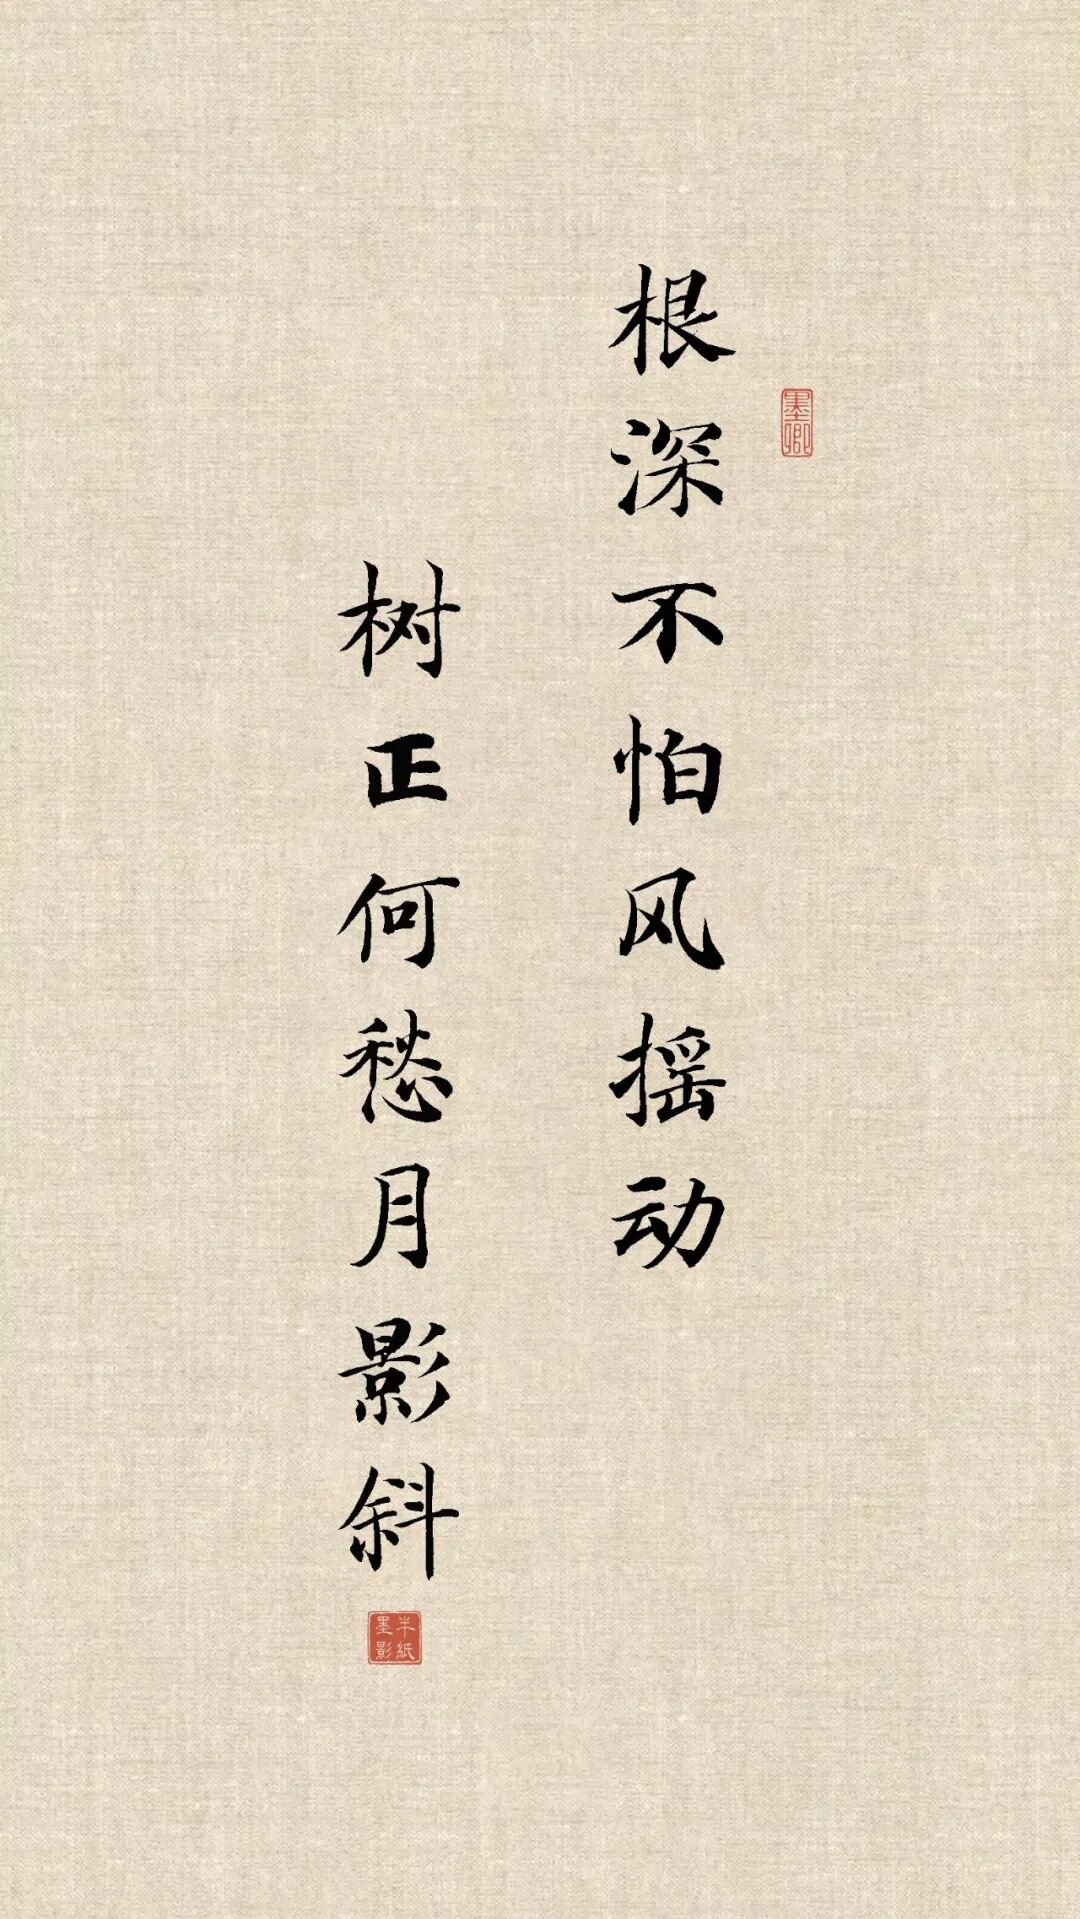 根深不怕风摇动
墨卿
树正何愁月影斜
半纸
墨影